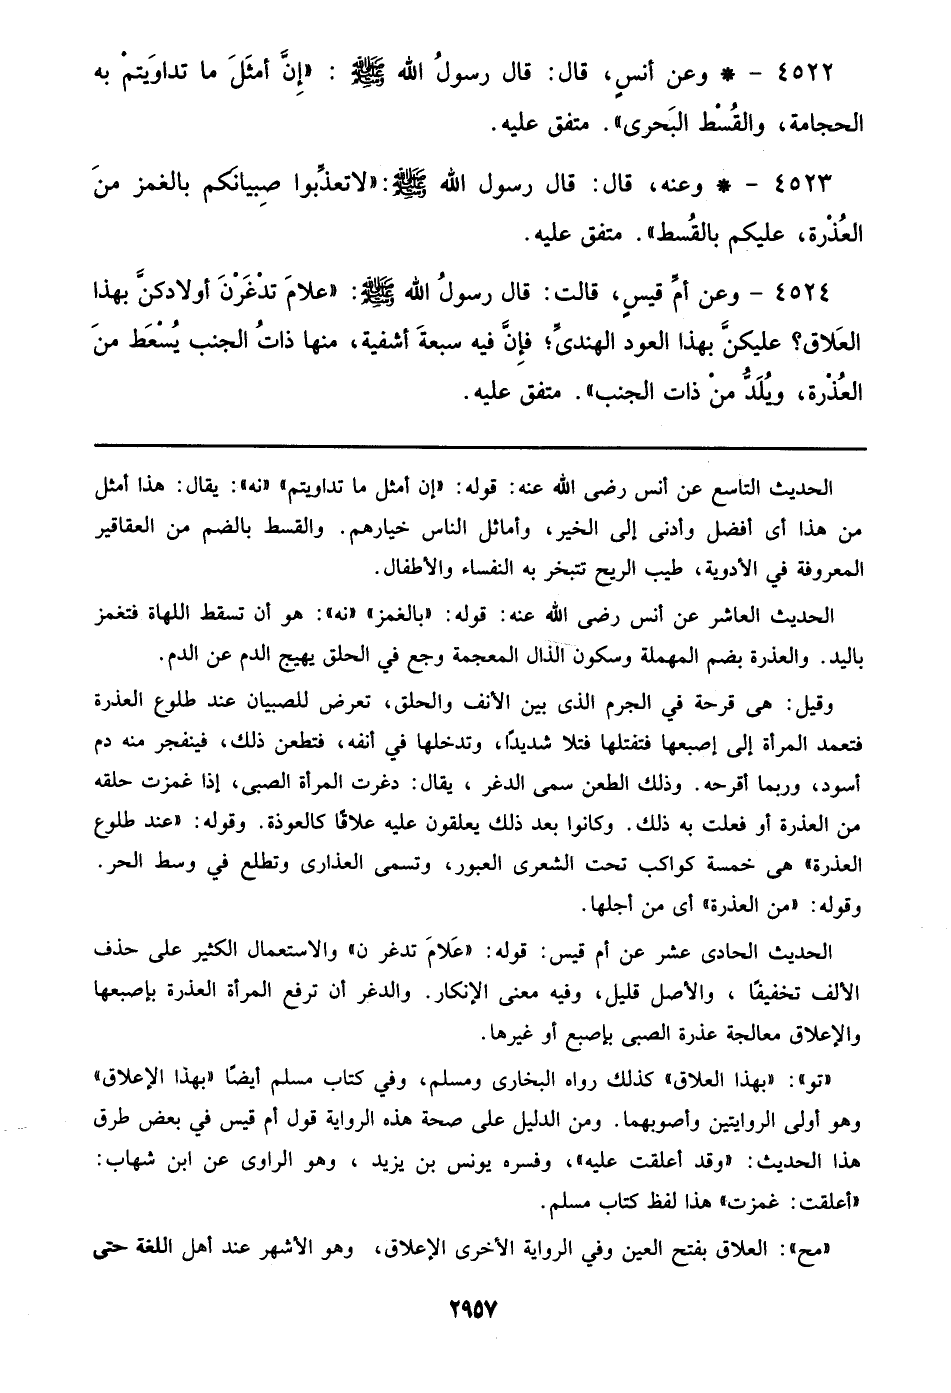 ٤٥٢٢ - * وعن أنسٍ، قال: قال رسولُ الله ﷺ : «إنَّ أمثَلَ ما تداوَيتمْ به
الحجامة، والقُسْط البَحرى». متفق عليه.
٤٥٢٣ - * وعنه، قال: قال رسول الله ﷺ:«لاتعذِّبوا صبِيانَكم بالغمز منَ
العُذْرة، عليكم بالقُسط». متفق عليه.
٤٥٢٤ - وعن أمِّ قيسٍ، قالت: قال رسولُ الله ﷺ: «علامَ تدْغَرْنَ أولادكنَّ بهذا
العَلاق؟ عليكنَّ بهذا العود الهندىِّ؛ فإِنَّ فيه سبعةَ أشفية، منها ذاتُ الجنب يُسْعَط منَ
العُذْرة، ويُلَدُّ منْ ذات الجنب». متفق عليه.
الحديث التاسع عن أنس رضى الله عنه: قوله: «إن أمثل ما تداويتم» «نه»: يقال: هذا أمثل
من هذا أى أفضل وأدنى إلى الخير، وأماثل الناس خيارهم. والقسط بالضم من العقاقير
المعروفة في الأدوية، طيب الريح تتبخر به النفساء والأطفال.
الحديث العاشر عن أنس رضى الله عنه: قوله: «بالغمز» «نه»: هو أن تسقط اللهاة فتغمز
باليد. والعذرة بضم المهملة وسكون الذال المعجمة وجع في الحلق يهيج الدم عن الدم.
وقيل: هى قرحة في الجرم الذى بين الأنف والحلق، تعرض للصبيان عند طلوع العذرة
فتعمد المرأة إلى إصبعها فتفتلها فتلا شديدًا، وتدخلها في أنفه، فتطعن ذلك، فينفجر منه دم
أسود، وربما أقرحه. وذلك الطعن سمى الدغر ، يقال: دغرت المرأة الصبى، إذا غمزت حلقه
من العذرة أو فعلت به ذلك. وكانوا بعد ذلك يعلقون عليه علاقًا كالعوذة. وقوله: «عند طلوع
العذرة» هى خمسة كواكب تحت الشعرى العبور، وتسمى العذارى وتطلع في وسط الحر.
وقوله: «من العذرة» أى من أجلها.
الحديث الحادى عشر عن أم قيس: قوله: «عَلامَ تدغر ن» والاستعمال الكثير على حذف
الألف تخفيفًا ، والأصل قليل، وفيه معنى الإنكار. والدغر أن ترفع المرأة العذرة بإصبعها
والإعلاق معالجة عذرة الصبى بإصبع أو غيرها.
«تو»: «بهذا العلاق» كذلك رواه البخارى ومسلم، وفي كتاب مسلم أيضًا «بهذا الإعلاق»
وهو أولى الروايتين وأصوبهما. ومن الدليل على صحة هذه الرواية قول أم قيس في بعض طرق
هذا الحديث: «وقد أعلقت عليه»، وفسره يونس بن يزيد ، وهو الراوى عن ابن شهاب:
«أعلقت: غمزت» هذا لفظ كتاب مسلم.
«مح»: العلاق بفتح العين وفي الرواية الأخرى الإعلاق، وهو الأشهر عند أهل اللغة حتى
٢٩٥٧